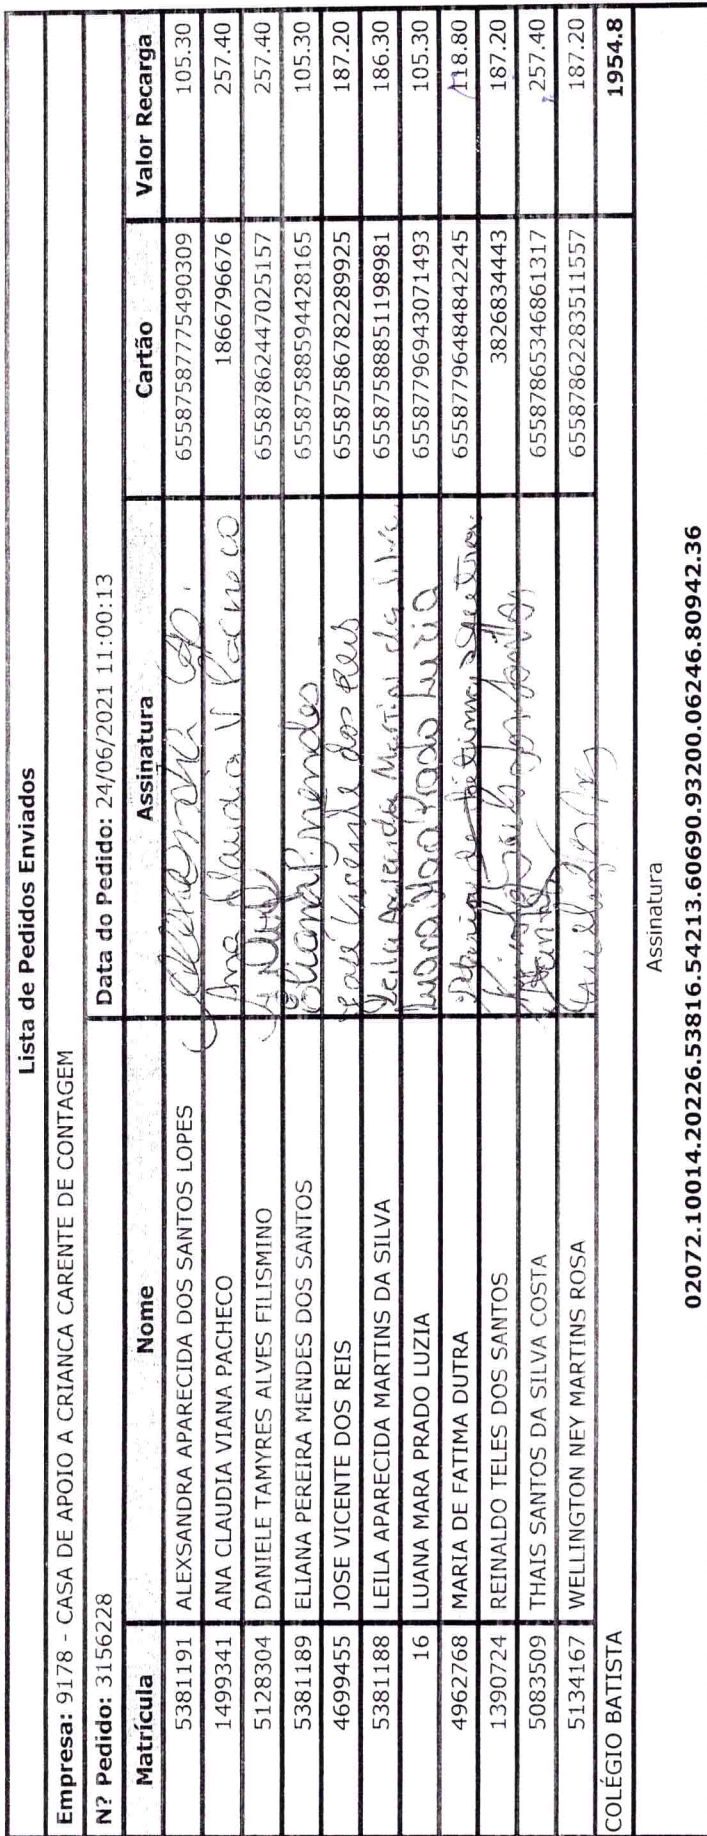 Lista de Pedidos Enviados
Empresa: 9178 - CASA DE APOIO A CRIANCA CARENTE DE CONTAGEM
N? Pedido: 3156228 Data do Pedido: 24/06/2021 11:00:13
Matrícula Nome Assinatura Cartão Valor Recarga
5381191 ALEXSANDRA APARECIDA DOS SANTOS LOPES 65587587775490309 105.30
1499341 ANA CLAUDIA VIANA PACHECO Ana Claudia V Pacheco 1866796676 257.40
5128304 DANIELE TAMYRES ALVES FILISMINO 65587862447025157 257.40
5381189 ELIANA PEREIRA MENDES DOS SANTOS Eliana P. mendes 65587588594428165 105.30
4699455 JOSE VICENTE DOS REIS José Vicente dos Reis 65587586782289925 187.20
5381188 LEILA APARECIDA MARTINS DA SILVA Leila Aparecida Martins da Silva 65587588851198981 186.30
16 LUANA MARA PRADO LUZIA Luana Mara Prado Luzia 65587796943071493 105.30
4962768 MARIA DE FATIMA DUTRA Maria de Fátima Dutra 65587796484842245 118.80
1390724 REINALDO TELES DOS SANTOS 3826834443 187.20
5083509 THAIS SANTOS DA SILVA COSTA 65587865346861317 257.40
5134167 WELLINGTON NEY MARTINS ROSA 65587862283511557 187.20
COLÉGIO BATISTA 1954.8
Assinatura
02072.10014.20226.53816.54213.60690.93200.06246.80942.36